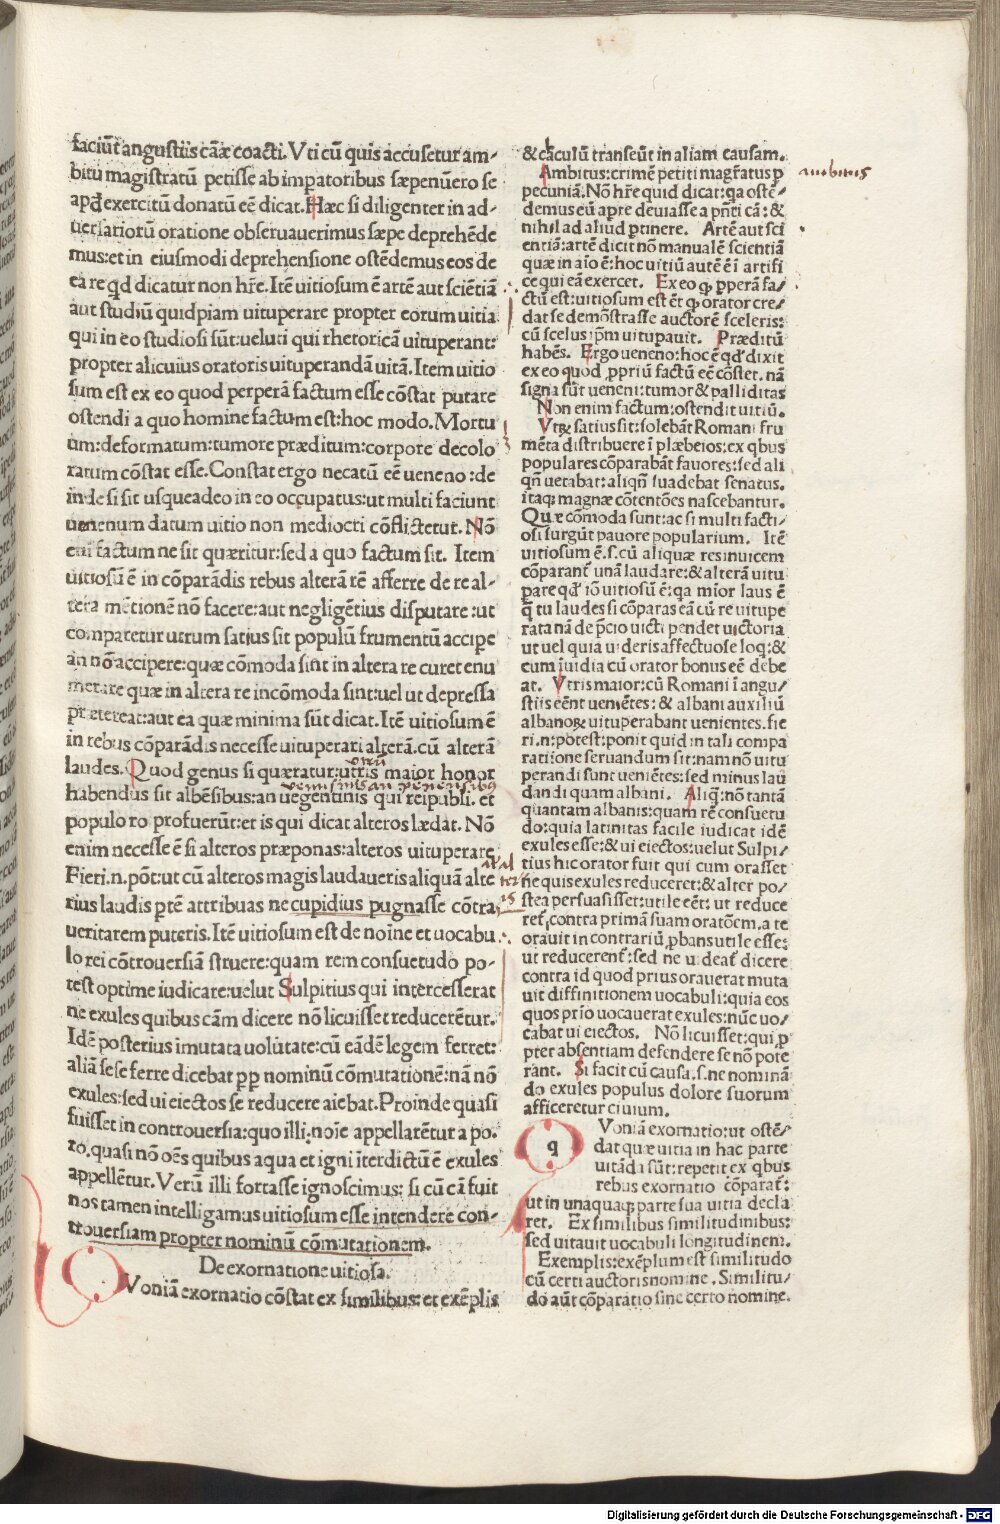 faciũt angustiis cãæ coacti. Vti cũ quis accusetur am-
bitu magistratũ petisse ab impatoribus sæpenũero se
apđ exercitũ donatũ eẽ dicat. Hæc si diligenter in ad-
uersariorũ oratione obseruauerimus sæpe deprehẽde
mus: et in eiusmodi deprehensione ostẽdemus eos de
ea re qd dicatur non hr̃e. Itẽ uitiosum ẽ artẽ aut sciẽtiã
aut studiũ quidpiam uituperare propter eorum uitia
qui in eo studiosi sũt: ueluti qui rhetoricã uituperant:
propter alicuius oratoris uituperandã uitã. Item uitio
sum est ex eo quod perperã factum esse cõstat putare
ostendi a quo homine factum est: hoc modo. Mortu
um: deformatum: tumore præditum: corpore decolo
ratum cõstat esse. Constat ergo necatũ eẽ ueneno: de
inde si sit usqueadeo in eo occupatus: ut multi faciunt
uenenum datum uitio non mediocri cõflictetur. Nõ
eni factum ne sit quæritur: sed a quo factum sit. Item
uitiosũ ẽ in cõparãdis rebus alterã rẽ afferre de re al-
tera mẽtionẽ nõ facere: aut negligẽtius disputare: ut
comparetur utrum satius sit populũ frumentũ accipe
an nõ accipere: quæ cõmoda sint in altera re curet enu
merare quæ in altera re incõmoda sint: uel ut depressa
prætereat: aut ea quæ minima sũt dicat. Itẽ uitiosum ẽ
in rebus cõparãdis necesse uituperari alterã. cũ alterã
laudes. Quod genus si quæratur: utris maior honor
habendus sit albẽsibus: an uegentinis qui reipubli. et
populo ro profuerũt: et is qui dicat alteros lædat. Nõ
enim necesse ẽ si alteros præponas: alteros uituperare
Fieri. n. põt: ut cũ alteros magis laudaueris aliquã alte
rius laudis ptẽ attribuas ne cupidius pugnasse cõtra
ueritatem puteris. Itẽ uitiosum est de noĩne et uocabu
lo rei cõtrouersiã struere: quam rem consuetudo po-
test optime iudicare: uelut Sulpitius qui intercesserat
ne exules quibus cãm dicere nõ licuisset reducerẽtur.
Idẽ posterius imutata uolũtate: cũ eãdẽ legem ferret:
aliã sese ferre dicebat pp nominũ cõmutationẽ: nã nõ
exules: sed ui eiectos se reducere aiebat. Proinde quasi
fuisset in controuersia: quo illi noĩe appellarẽtur a po.
ro. quasi nõ oẽs quibus aqua et igni ĩterdictũ ẽ exules
appellẽtur. Verũ illi fortasse ignoscimus: si cũ cã fuit
nos tamen intelligamus uitiosum esse intendere con-
trouersiam propter nominũ cõmutationem.
De exornatione uitiosa.
Voniã exornatio cõstat ex similibus: et exẽplis
& calculũ transeũt in aliam causam.
Ambitus: crimẽ petiti magr̃atus p
pecuniã. Nõ hr̃e quid dicat: qa ostẽ-
demus eũ apre deuiasse a pñti cã: &
nihil ad aliud ptinere. Artẽ aut sci
entiã: artẽ dicit nõ manualẽ scientiã
quæ in aĩo ẽ: hoc uitiũ autẽ ẽ ĩ artifi
ce qui eã exercet. Ex eo q pperã fa-
ctũ est: uitiosum est ẽt q orator cre-
dat se demõstrasse auctorẽ sceleris:
cũ scelus ipm uitupauit. Præditũ
habẽs. Ergo ueneno: hoc ẽ qđ dixit
ex eo quod ppriũ factũ eẽ cõstet. nã
signa sũt ueneni: tumor & palliditas
Non enim factum: ostendit uitiũ.
Vtrũ satius sit: solebãt Romani fru
mẽta distribuere ĩ plæbeios: ex qbus
populares cõparabãt fauores: sed ali
qñ uetabat: aliqñ suadebat senatus.
itaq magnæ cõtentões nascebantur.
Quæ cõmoda sunt: ac si multi facti-
osi surgũt pauore popularium. Itẽ
uitiosum ẽ. s. cũ aliquæ res inuicem
cõparant̃ unã laudare: & alterã uitu
pare qđ iõ uitiosũ ẽ: qa mior laus ẽ
q̃ tu laudes si cõparas eã cũ re uitupe
rata nã de pcio uicti pendet uictoria
ut uel quia uideris affectuose loq: &
cum ĩuidia cũ orator bonus eẽ debe
at. Vtris maior: cũ Romani ĩ angu-
stiis eẽnt ueniẽtes: & albani auxiliũ
albanoꝝ uituperabant uenientes. fie
ri. n: potest: ponit quid in tali compa
ratione seruandum sit: nam nõ uitu
perandi sunt ueniẽtes: sed minus lau
dandi quam albani. Aliq: nõ tantã
quantam albanis: quam rẽ consuetu
do: quia latinitas facile iudicat idẽ
exules esse: & ui eiectos: uelut Sulpi-
tius hic orator fuit qui cum orasset
ne quis exules reduceret: & alter po-
stea persuasisset: utile eẽt: ut reduce
ret, contra primã suam oratõem. a te
orauit in contrariũ pbans utile esse:
ut reducerent̃: sed ne uideat̃ dicere
contra id quod prius orauerat muta
uit diffinitionem uocabuli: quia eos
quos prio uocauerat exules: nũc uo-
cabat ui eiectos. Nõ licuisset: qui p
pter absentiam defendere se nõ pote
rant. Si facit cũ causa. s. ne nominã
do exules populus dolore suorum
afficeretur ciuium.
q
Voniã exornatio: ut ostẽ-
dat quæ uitia in hac parte
uitãda sũt: repetit ex qbus
rebus exornatio cõparat̃:
ut in unaquaq parte sua uitia decla
ret. Ex similibus similitudinibus:
sed uitauit uocabuli longitudinem.
Exemplis: exẽplum est similitudo
cũ certi auctoris nomine. Similitu-
do aũt cõparatio sine certo nomine.
Digitalisierung gefördert durch die Deutsche Forschungsgemeinschaft - DFG